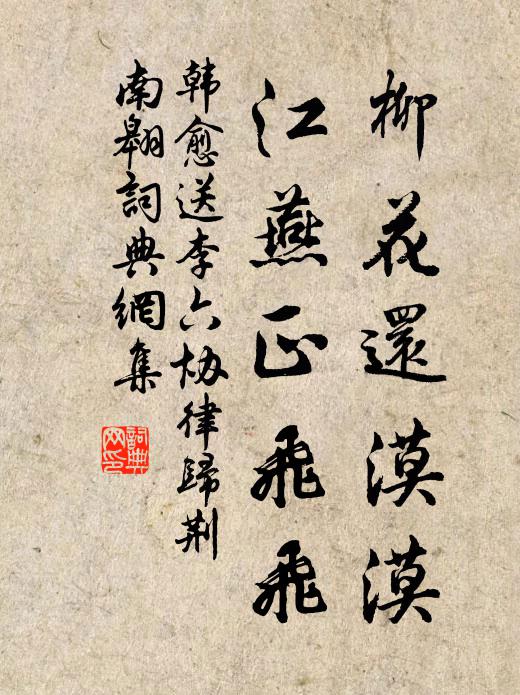 柳花還漠漠
江燕正飛飛
韩愈送李六协律歸荆
南翱詞典網集
詞典
网印